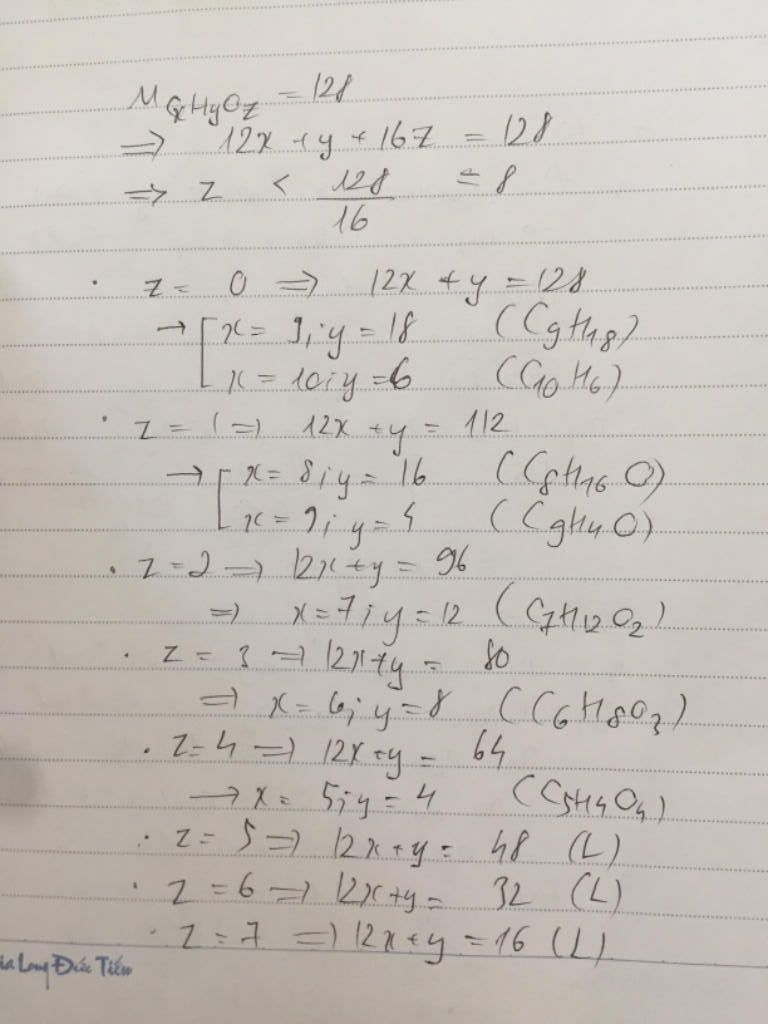 M CxHyOz = 128
=> 12x + y + 16z = 128
=> z < 128/16 = 8
· z = 0 => 12x + y = 128
→ [ x = 9; y = 18 (C9H18)
x = 10; y = 6 (C10H6)
· z = 1 => 12x + y = 112
→ [ x = 8; y = 16 (C8H16O)
x = 9; y = 4 (C9H4O)
· z = 2 => 12x + y = 96
=> x = 7; y = 12 (C7H12O2)
· z = 3 => 12x + y = 80
=> x = 6; y = 8 (C6H8O3)
· z = 4 => 12x + y = 64
→ x = 5; y = 4 (C5H4O4)
· z = 5 => 12x + y = 48 (L)
· z = 6 => 12x + y = 32 (L)
· z = 7 => 12x + y = 16 (L)
ia Long Đức Tiến